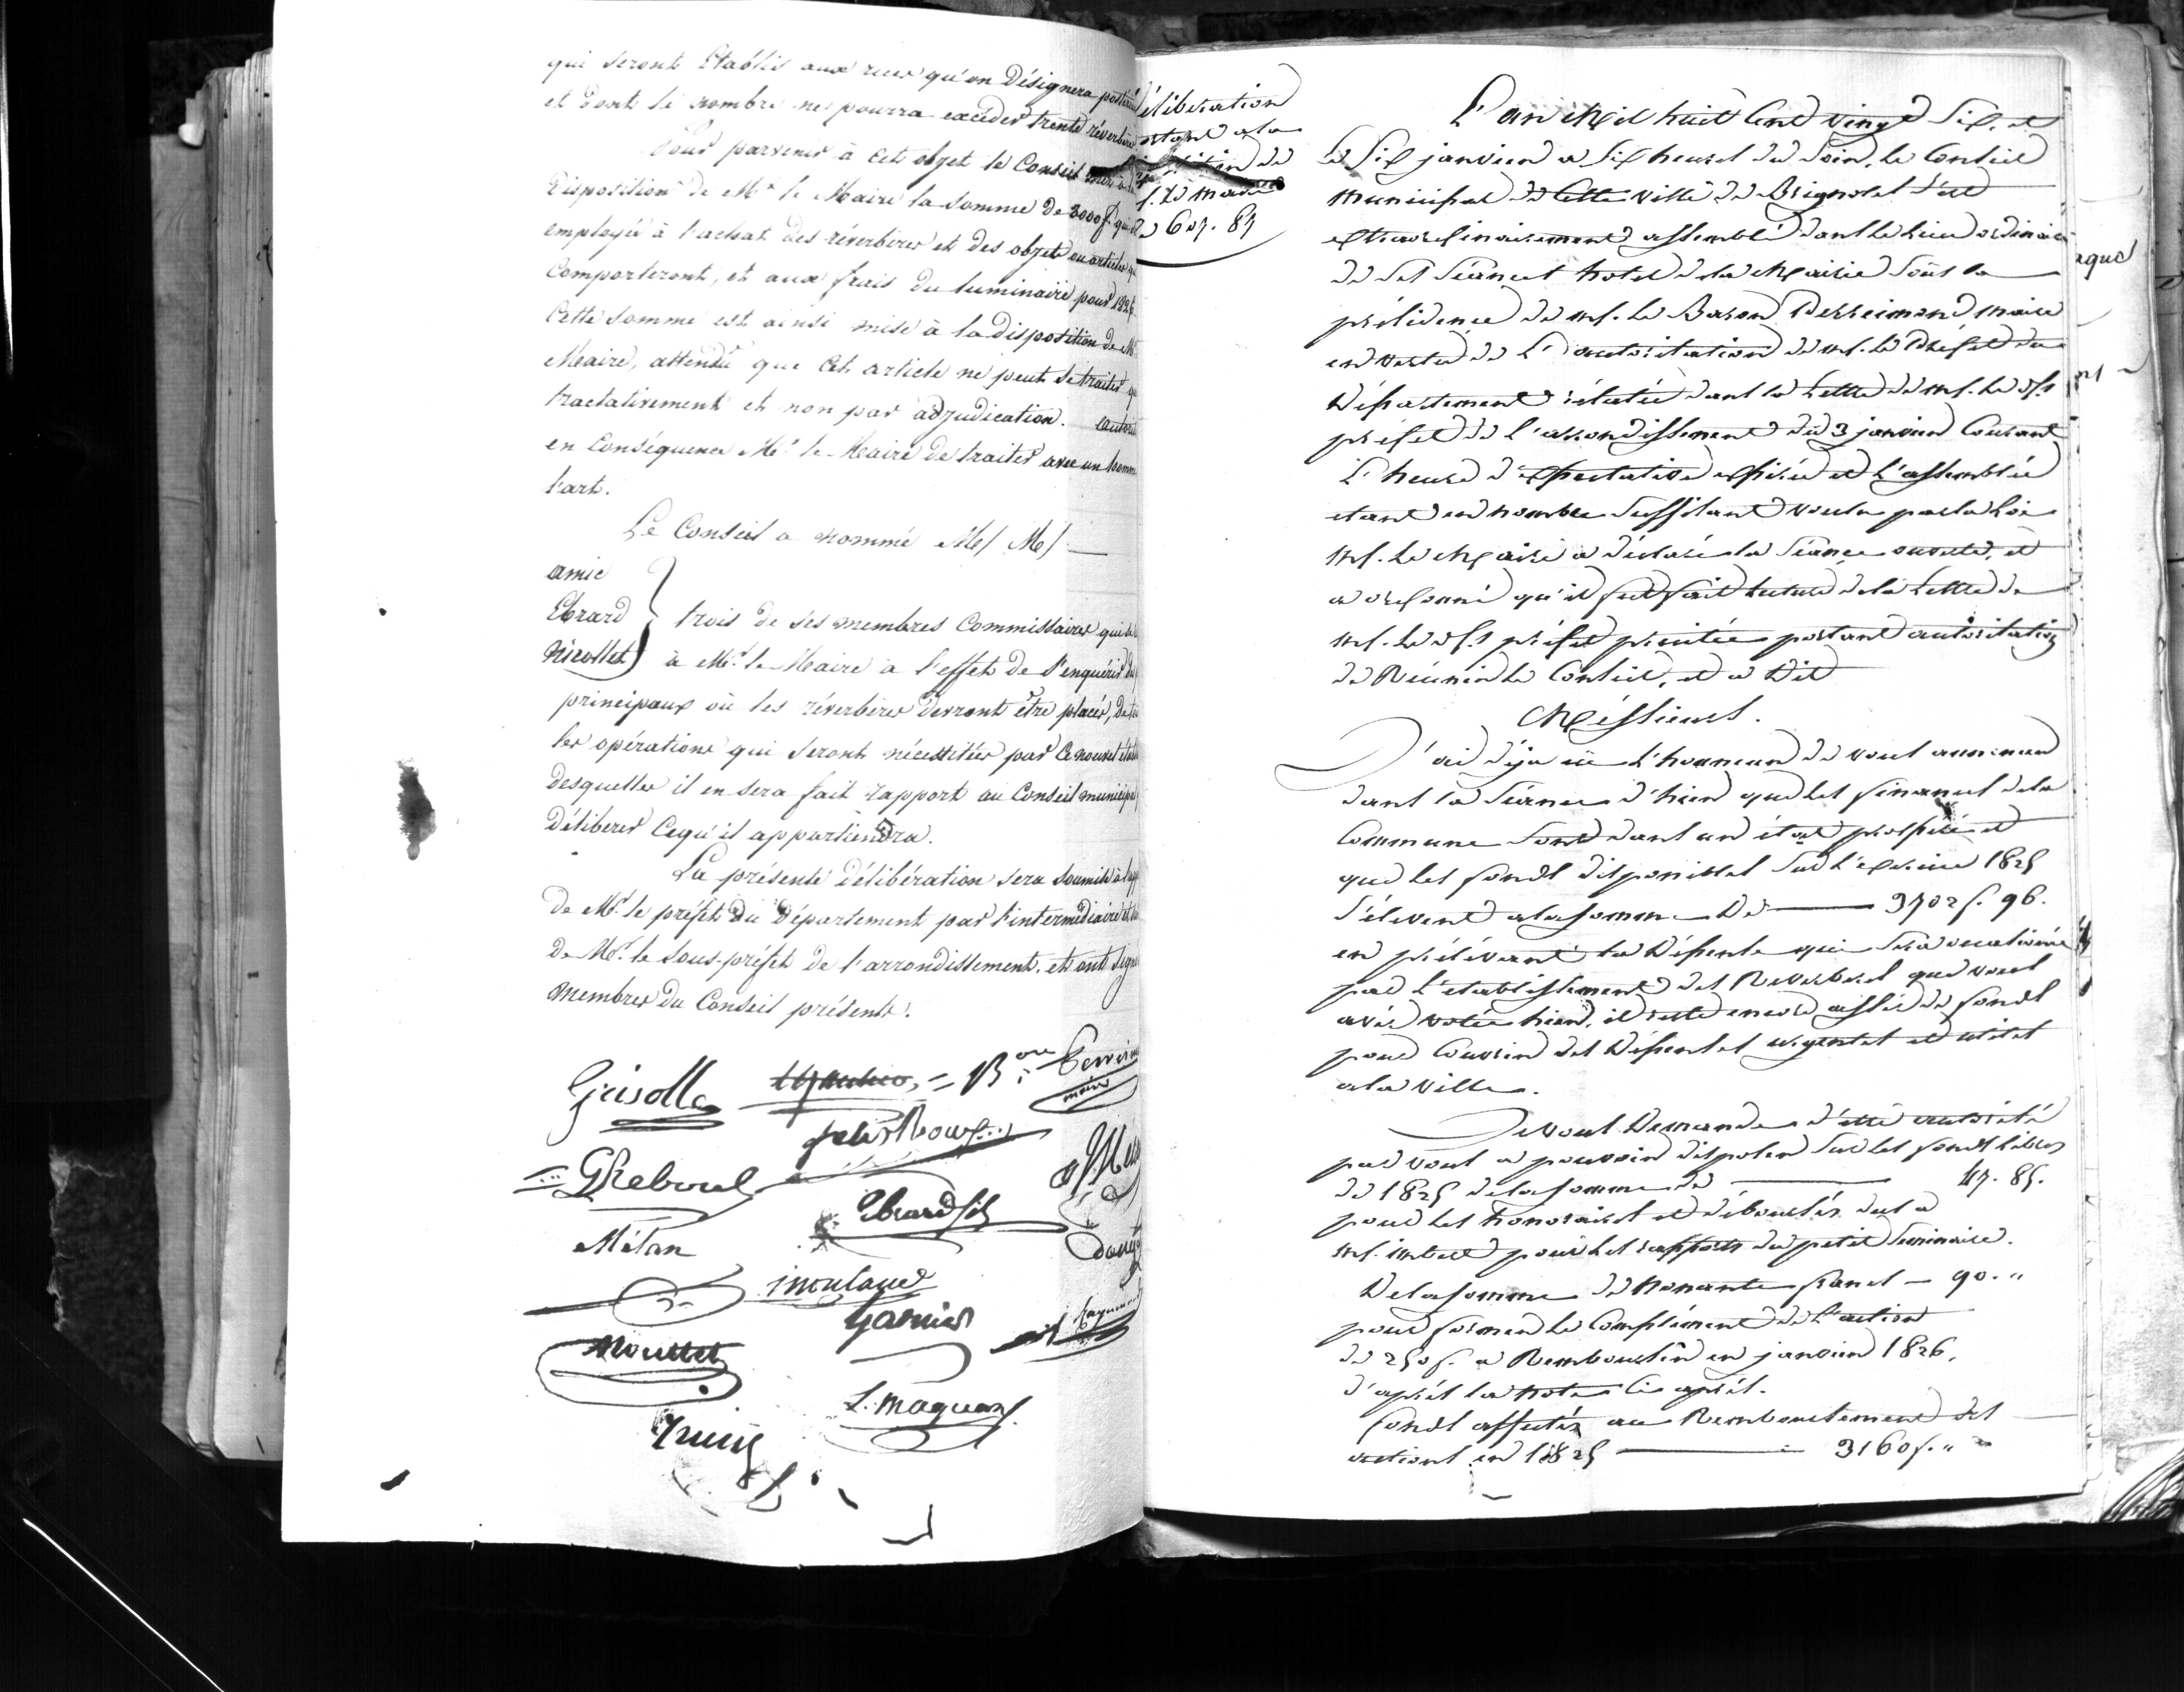 qui seront Etablis aux rues qu'on Désignera
et dont le nombre ne pourra excéder trente réverbères
Pour parvenir à cet objet le Conseil
Disposition de Mr le Maire la somme de 3000f
employée à l'achat des réverbères et des objets ou articles
Comporteront, et aux frais du luminaire pour 1826
Cette somme est ainsi mise à la disposition de Mr
Maire, attendu que cet article ne peut se traiter
tractativement et non par adjudication.
en Conséquence Mr le Maire de traiter avec un homme
l'art.
Le Conseil a nommé MM
amic
Ebrard
Nicollet
trois de ses membres Commissaires
à Mr le Maire à l'effet de s'enquérir
principaux où les réverbères devront être placés,
les opérations qui seront nécessitées par ce nouvel
desquelles il en sera fait rapport au Conseil municipal
Délibérer Cequ'il appartiendra.
La présente Délibération sera soumise à
de Mr le préfet Du Département par l'intermédiaire
de Mr le Sous-préfet de l'arrondissement, et ont signé
membres Du Conseil présents.
Grisolle
Bon
maire
GReboul
Ebrard fils
Mélan
Garnier
Mouttet
L. Maquan
élibération
607.87
L'an Mil huit Cent vingt Six, et
le Six janvier a Six heures du Soir, le Conseil
municipal de Cette ville de Brignoles S'est
extraordinairement assemblé dans le lieu ordinaire
de Ses Séances hotel de la Mairie Sous la
présidence de M. Le Baron Perreimond maire
en vertu de L'autorisation de M. Le Préfet du
Département rélatée dans la Lettre de M. Le Ss
préfet de l'arrondissement du 3 janvier Courant
L'heure d'expectative expirée et l'assemblée
etant en nombre Suffisant voulu par la Loi
M. Le Maire a déclaré la Séance ouverte, et
a ordonné qu'il fut fait Lecture de la Lettre de
M. Le Ss préfet précitée portant autorisation
de Réunir le Conseil, et a Dit
Messieurs.
J'ai déja eü L'honneur de vous annoncer
dans la Séance d'hier que les finances de la
Commune Sont dans un état prospère et
que les fonds disponibles Sur l'exercice 1825
S'élevent a la Somme De 3702f. 96.
en prélévant la Dépense qui Sera occasionnée
par L'etablissement des Reverberes que vous
avés votée hier, il reste encore assés de fonds
pour Couvrir des Dépenses urgentes et utiles
a la Ville.
Je vous Demande d'etre autorisé
par vous a pouvoir disposer Sur les fonds libres
de 1825 de la somme de 47.85.
pour les honoraires et déboursés dus a
M. pour les rapports du petit Seminaire.
De la somme de Nonante francs 90. "
pour former le Complément de L'action
de 250f. a Rembourser en janvier 1826,
d'après la Note Ci après.
fonds affectés au Remboursement des
actions en 1825 3160f. "